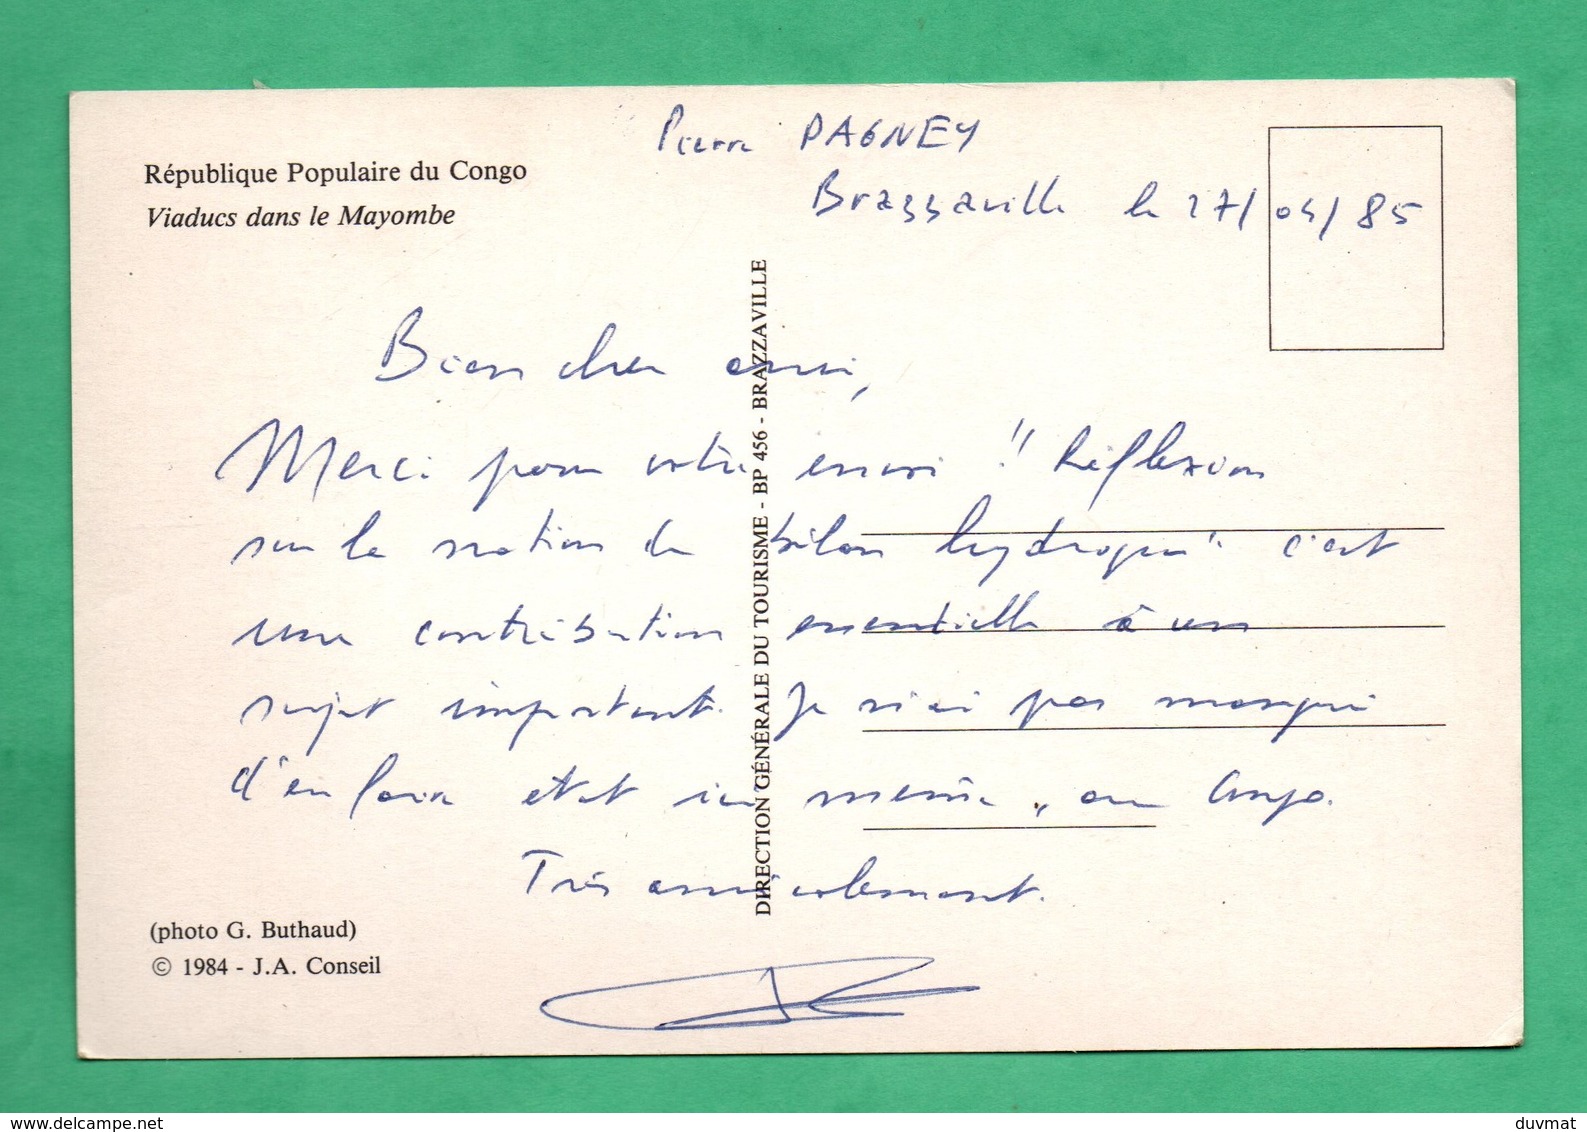 Pierre PAGNEY
Brazzaville le 27/04/85
République Populaire du Congo
Viaducs dans le Mayombe
Bien cher ami,
Merci pour votre envoi "Réflexion
sur la notion de bilan hydrique" c'est
une contribution essentielle à un
sujet important. Je n'ai pas manqué
d'en faire état ici même, au Congo.
Très amicalement.
DIRECTION GÉNÉRALE DU TOURISME - BP 456 - BRAZZAVILLE
(photo G. Buthaud)
© 1984 - J.A. Conseil
www.delcampe.net
duvmat